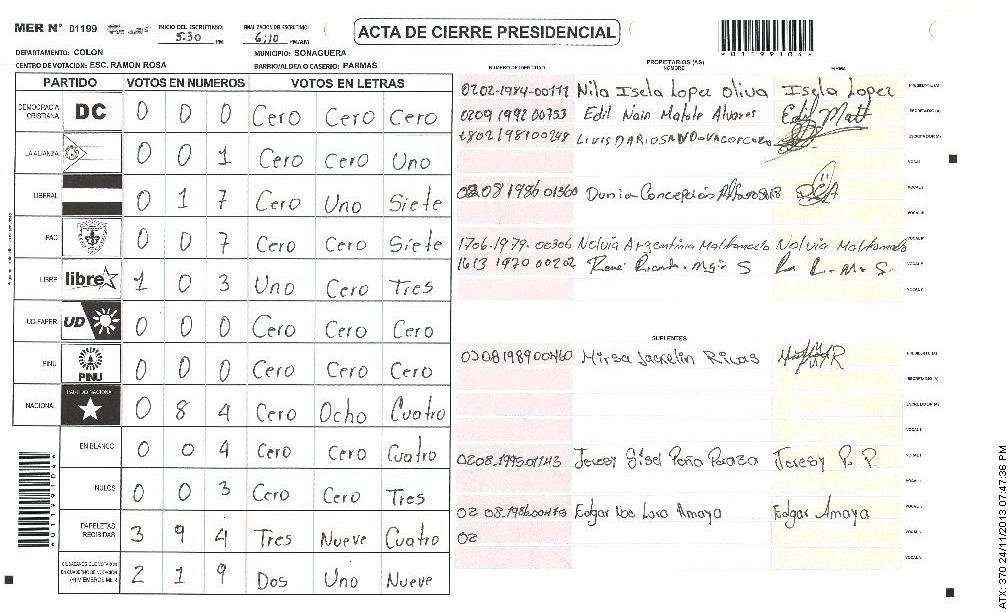 MER N° 01199
INICIO DEL ESCRUTINIO: 5:30 PM
FINALIZACION DEL ESCRUTINIO: 6:10 PM/AM
ACTA DE CIERRE PRESIDENCIAL
0119910 4
DEPARTAMENTO: COLON
MUNICIPIO: SONAGUERA
CENTRO DE VOTACION: ESC. RAMON ROSA
BARRIO/ALDEA O CASERIO: PARMAS
PARTIDO VOTOS EN NUMEROS VOTOS EN LETRAS
DEMOCRACIA CRISTIANA DC 0 0 0 Cero Cero Cero
LA ALIANZA 0 0 1 Cero Cero Uno
LIBERAL 0 1 7 Cero Uno Siete
PAC 0 0 7 Cero Cero Siete
LIBRE libre 1 0 3 Uno Cero Tres
UD-FAPER UD 0 0 0 Cero Cero Cero
PINU PINU 0 0 0 Cero Cero Cero
NACIONAL PARTIDO NACIONAL 0 8 4 Cero Ocho Cuatro
EN BLANCO 0 0 4 Cero Cero Cuatro
NULOS 0 0 3 Cero Cero Tres
PAPELETAS RECIBIDAS 3 9 4 Tres Nueve Cuatro
CIUDADANOS QUE VOTARON EN CUADERNO DE VOTACION (+) MIEMBROS MER 2 1 9 Dos Uno Nueve
PROPIETARIOS (AS)
NUMERO DE IDENTIDAD NOMBRE FIRMA
Nila Isela Lopez Oliva Isela Lopez PRESIDENTE (A)
0209 1992 00753 Edil Nain Matute Alvares SECRETARIO (A)
ESCRUTADOR (A)
VOCAL I
Dunia Concepción
1706-1979-00306 Nolvia Argentina Maldonado Nolvia Maldonado
1613 1970 00202 René Ricardo
SUPLENTES
Mirsa Jackelin Rivas PRESIDENTE (A)
SECRETARIO (A)
ESCRUTADOR (A)
VOCAL I
0208-1995-01143 Jeresy Gisel Peña Peraza Jeresy P. P.
Edgar Noe Lara Amaya Edgar Amaya
02
ATX: 370 24/11/2013 07:47:36 PM